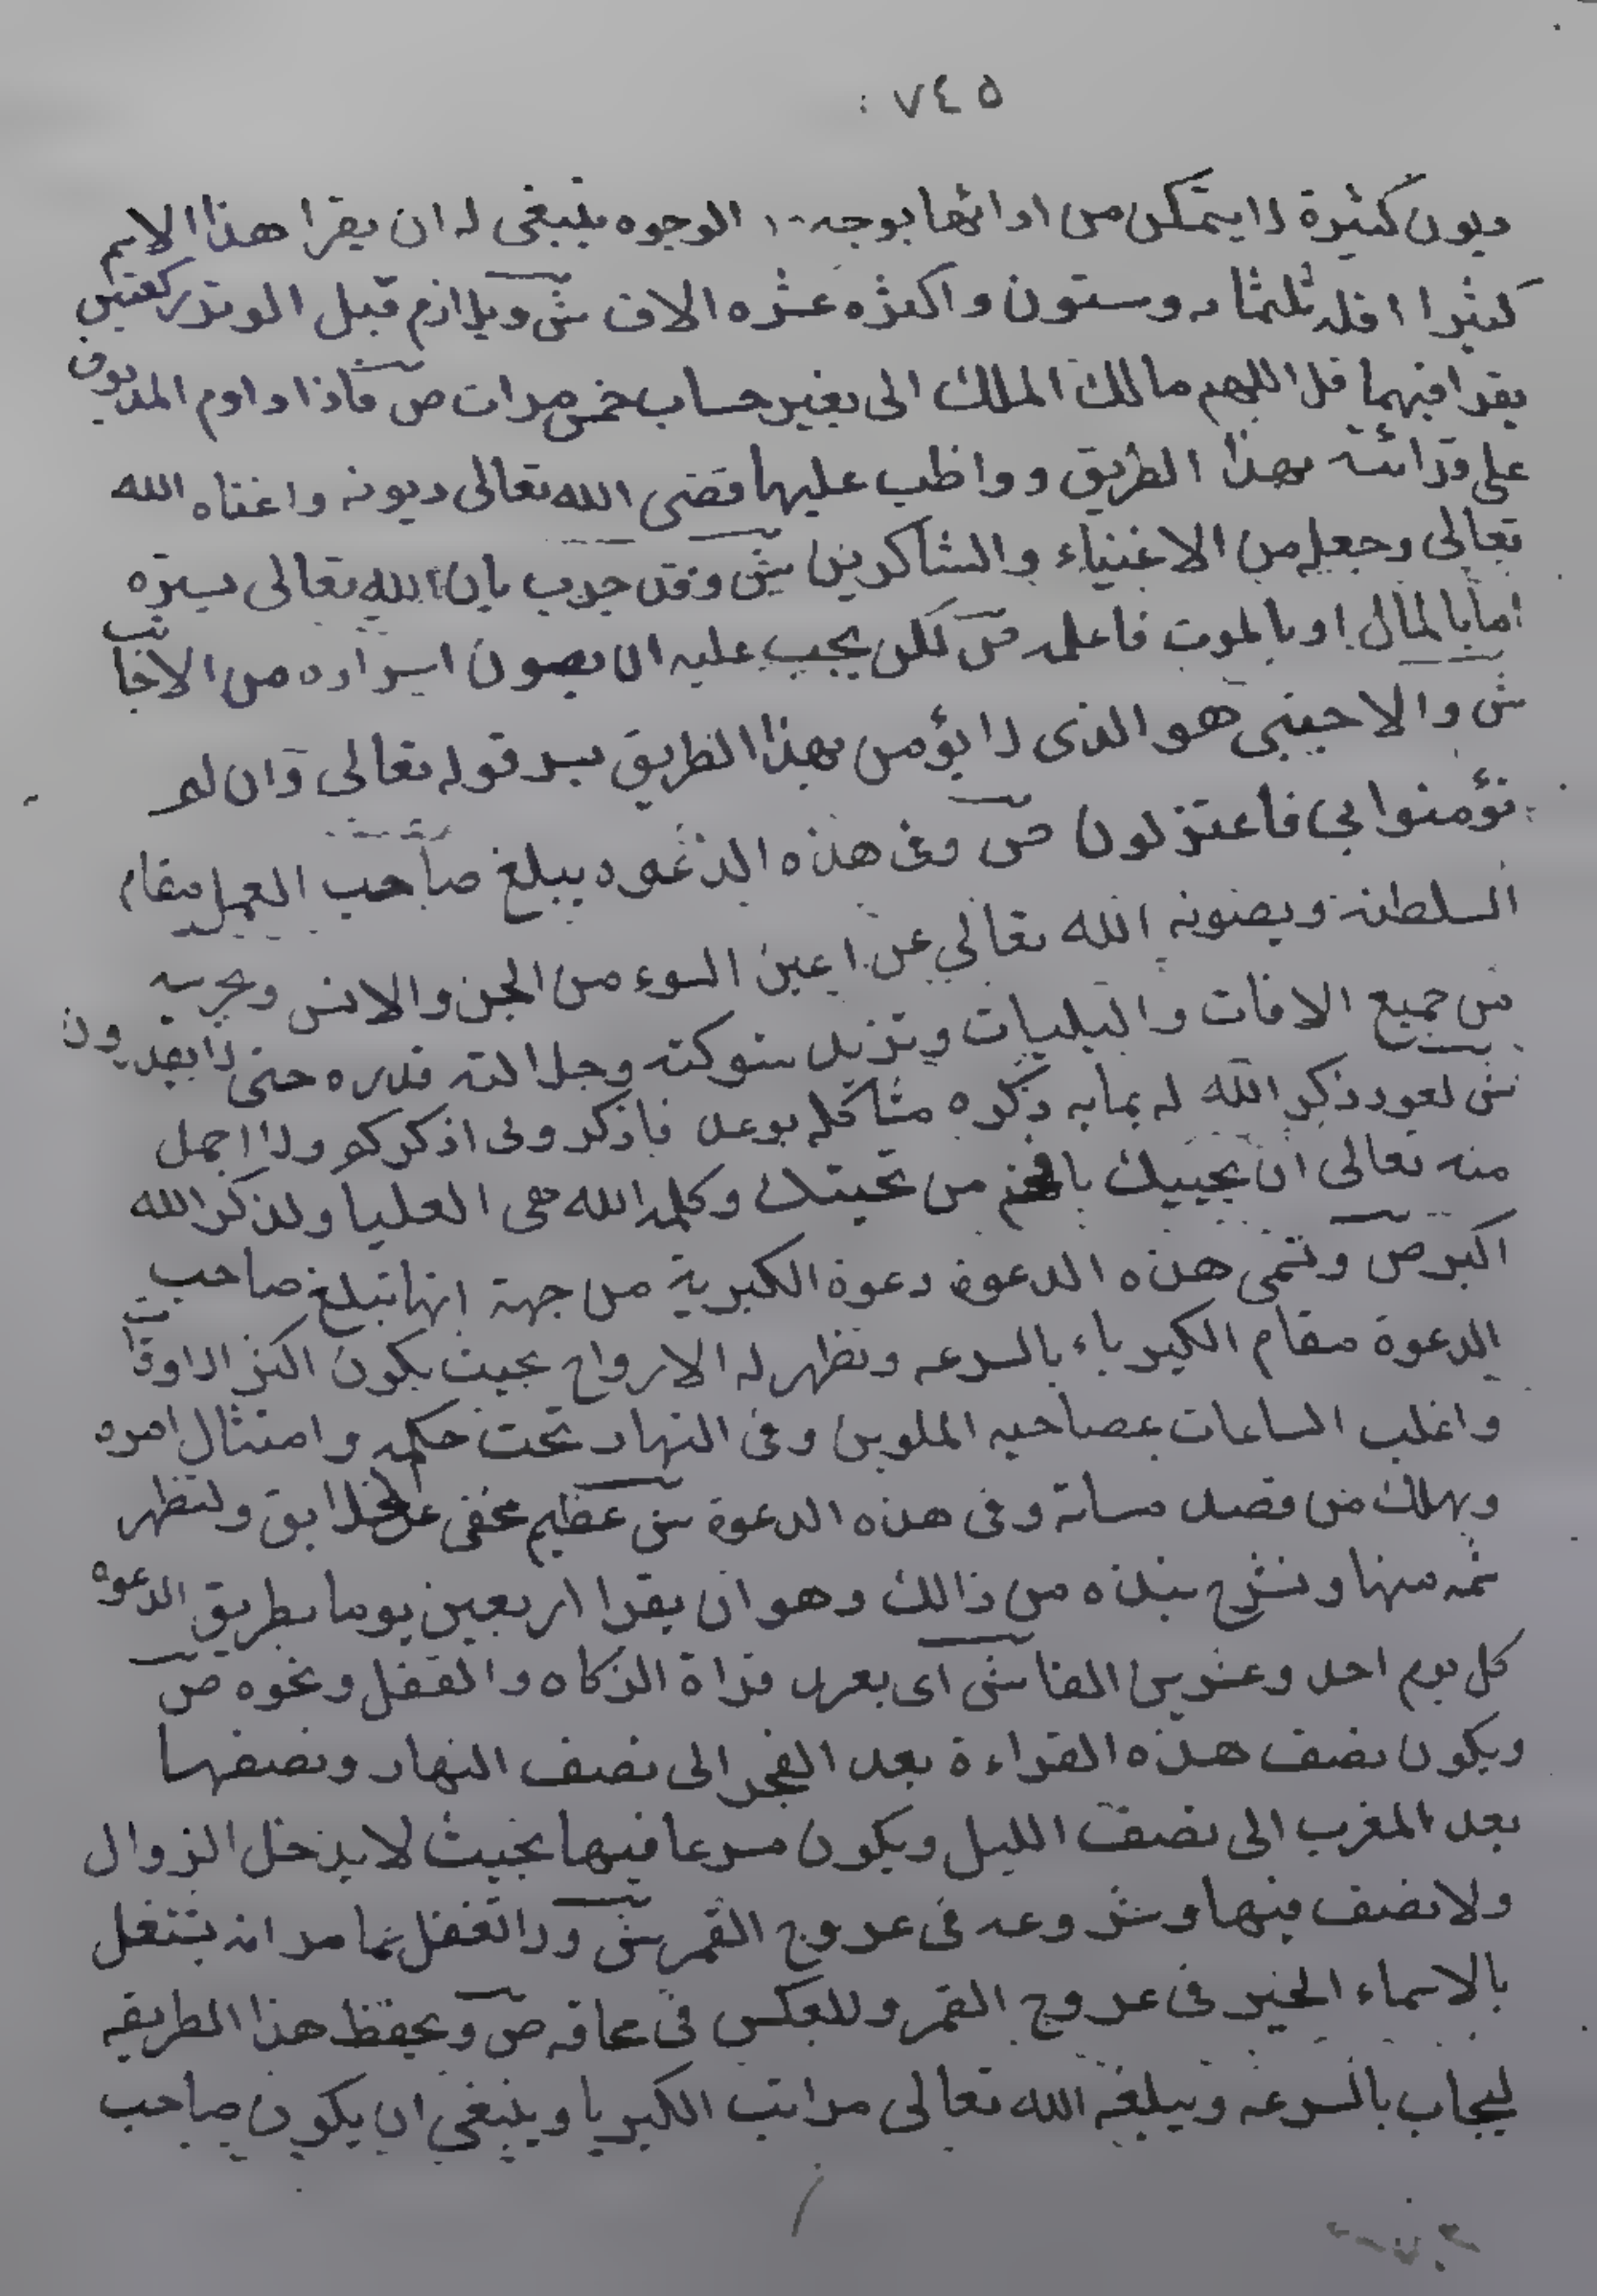 ٧٤٥
ديون كثيرة لا يتمكن من ادائها بوجه الوجوه ينبغى له ان يقرا هذا الاسم
كثيرا اقله ثلثمائه وستون واكثره عشره الاف ش ويلازم قبل الوتر ركعتين
يقرا فيهما قل اللهم مالك الملك الى بغير حساب خمس مرات ص فاذا داوم المديون
على قرائته بهذا الطريق وواظب عليها قضى الله تعالى ديونه واغناه الله
تعالى وجعله من الاغنياء والشاكرين ش وقد جرب بان الله تعالى يستره
اما بالمال او بالموت فاعلمه ص لكن يجب عليه ان يصون اسراره من الاجانب
ش والاجنبى هو الذى لا يؤمن بهذا الطريق بسر قوله تعالى وان لم
تؤمنوا بي فاعتزلون ص وفى هذه الدعوه يبلغ صاحب العمل مقام
السلطنة ويصونه الله تعالي عن اعين السوء من الجن والانس ويحرسه
من جميع الافات والبليات وتزيد شوكته وجلالته قدره حتى لا يقدرون
ش لعود ذكر الله له بمابه ذكره مشاكله بوعد فاذكرونى اذكركم ولا اجمل
منه تعالى ان يحييك من تحيتك وكلمه الله هى العليا ولذكر الله
اكبر ص وتسمى هذه الدعوة دعوة الكبرية من جهة انها تبلغ صاحب
الدعوة مقام الكبرياء بالسرعه وتظهر له الارواح بحيث يكون اكثر الاوقات
واغلب الساعات بمصاحبه الملوين وفى النهار تحت حكمه وامتثال امره
ويهلك من قصد مساته وفى هذه الدعوة ش عظيم مخفى عن الخلايق ولنظهر
ثمه منها ونشرح نبذه من ذالك وهو ان يقرا اربعين يوما بطريق الدعوه
كل يوم احد وعشرين الفا ش اى بعد قراة الزكاه والقفل ونحوه ص
ويكون نصف هذه القراءة بعد الفجر الى نصف النهار ونصفها
بعد المغرب الى نصف الليل ويكون مسرعا فيها بحيث لا يدخل الزوال
ولا نصف فيها وشروعه فى عروج القمر ش ولا تغفل عما مر انه يشتغل
بالاسماء الخير فى عروج القمر وللعكس فى محاقه ص ويحفظ هذا الطريقه
ليجاب بالسرعه ويبلغه الله تعالى مراتب الكبريا وينبغي ان يكون صاحب